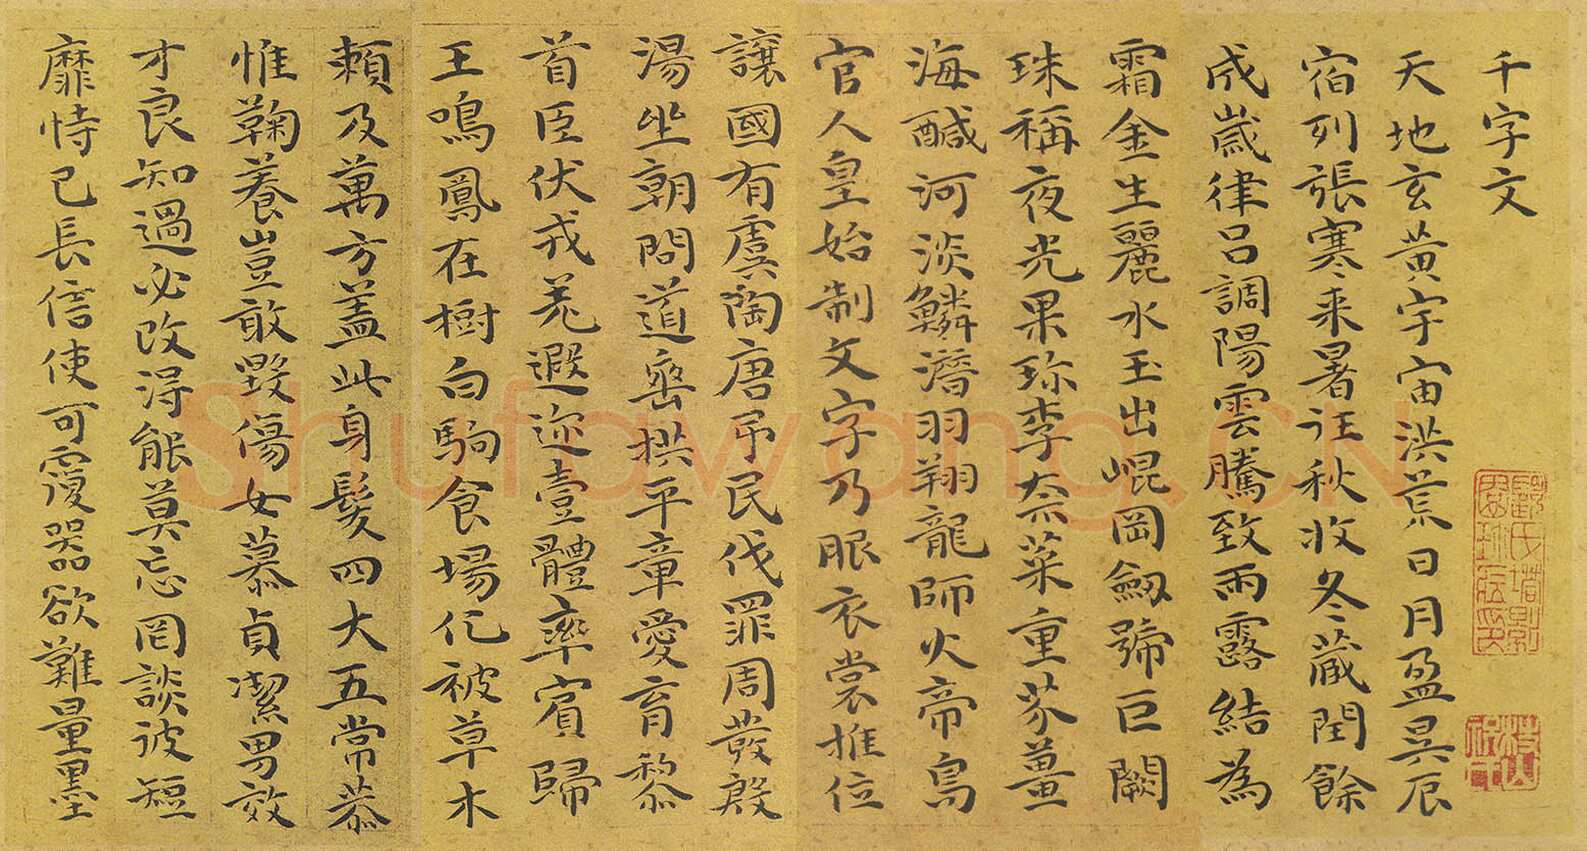 千字文
天地玄黃宇宙洪荒日月盈昃辰
宿列張寒來暑往秋收冬藏閏餘
成歲律呂調陽雲騰致雨露結為
霜金生麗水玉出崐岡劒號巨闕
珠稱夜光果珍李柰菜重芥薑
海醎河淡鱗潛羽翔龍師火帝鳥
官人皇始制文字乃服衣裳推位
讓國有虞陶唐弔民伐罪周發殷
湯坐朝問道垂拱平章愛育黎
首臣伏戎羌遐迩壹體率賓歸
王鳴鳳在樹白駒食場化被草木
賴及萬方蓋此身髮四大五常恭
惟鞠養豈敢毀傷女慕貞潔男效
才良知過必改得能莫忘罔談彼短
靡恃己長信使可覆器欲難量墨
Shufawang.CN